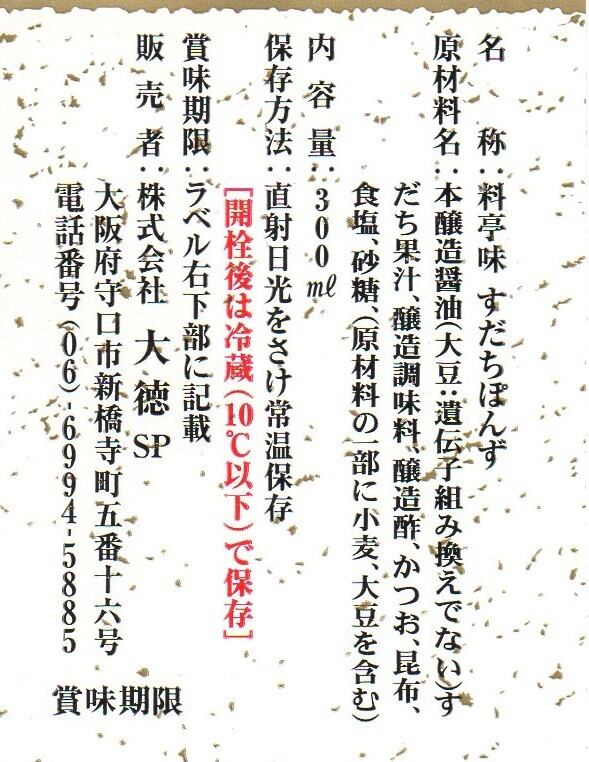 名　称：料亭味 すだちぽんず
原材料名：本醸造醤油（大豆：遺伝子組み換えでない）す
だち果汁、醸造調味料、醸造酢、かつお、昆布、
食塩、砂糖、（原材料の一部に小麦、大豆を含む）
内容量：300㎖
保存方法：直射日光をさけ常温保存
［開栓後は冷蔵（10℃以下）で保存］
賞味期限：ラベル右下部に記載
販売者：株式会社 大徳SP
大阪府守口市新橋寺町五番十六号
電話番号（06）-6994-5885
賞味期限